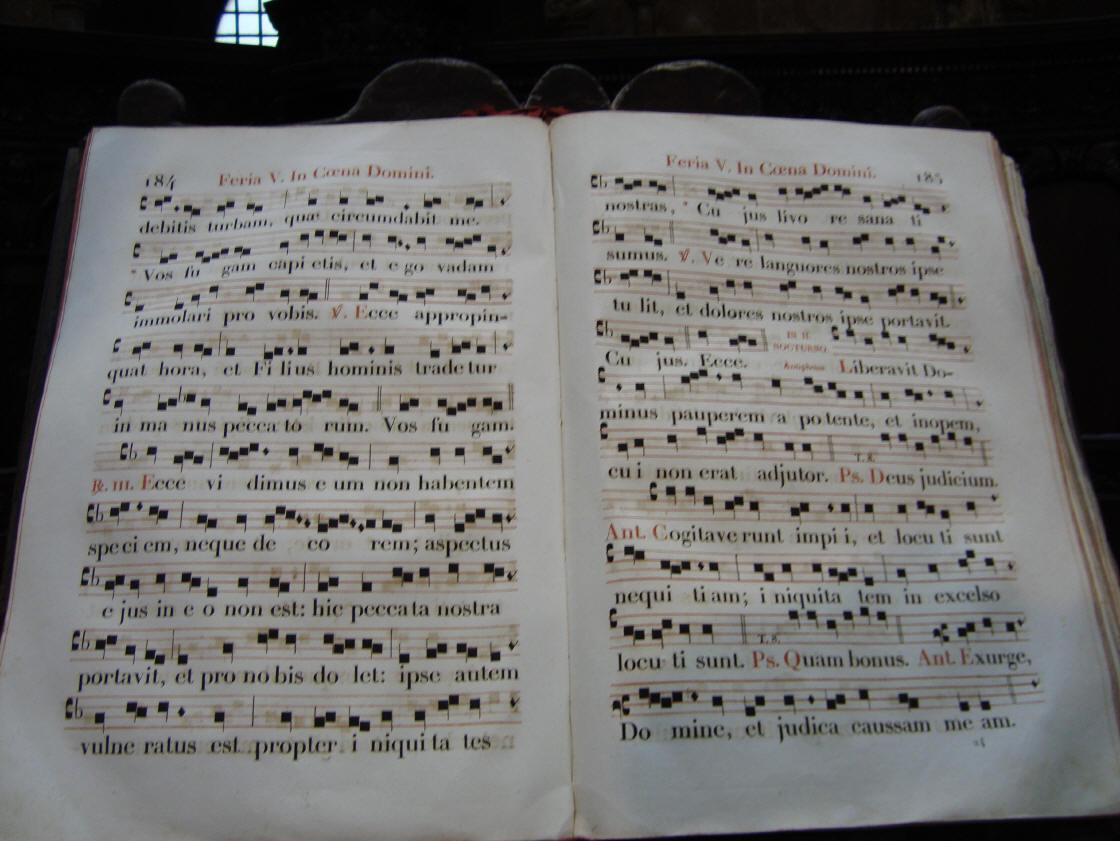 184
Feria V. In Cœna Domini.
debitis turbam, quæ circumdabit me.
* Vos fu gam capi etis, et e go vadam
immolari pro vobis. ℣. Ecce appropin=
quat hora, et Fi lius hominis trade tur
in ma nus pecca to rum. Vos fu gam.
℟. III. Ecce vi dimus e um non habentem
spe ci em, neque de co rem; aspectus
e jus in e o non est: hic pecca ta nostra
portavit, et pro no bis do let: ipse autem
vulne ratus est propter i niqui ta tes
Feria V. In Cœna Domini.
185
nostras, * Cu jus livo re sana ti
sumus. ℣. Ve re languores nostros ipse
tu lit, et dolores nostros ipse portavit.
Cu jus. Ecce. IN II. NOCTURNO. Antiphona Liberavit Do=
minus pauperem a po tente, et inopem,
T. 8.
cu i non erat adjutor. Ps. Deus judicium.
Ant. Cogitave runt impi i, et locu ti sunt
nequi ti am; i niquita tem in excelso
T. 8.
locu ti sunt. Ps. Quam bonus. Ant. Exurge,
Do mine, et judica caussam me am.